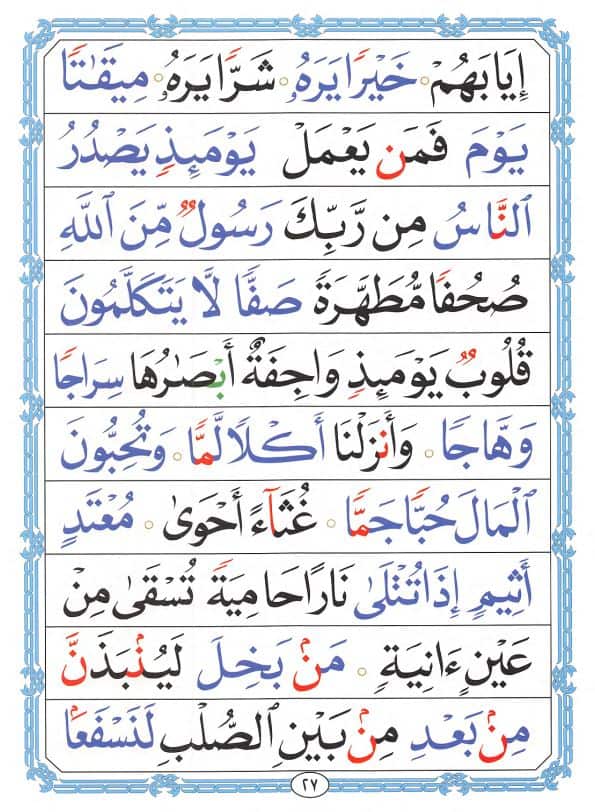 إِيَابَهُمْ ۰ خَيْرًا يَرَهُۥ ۰ شَرًّا يَرَهُۥ ۰ مِيقَٰتًا
يَوْمَ فَمَن يَعْمَلْ يَوْمَئِذٍ يَصْدُرُ
ٱلنَّاسُ مِن رَّبِّكَ رَسُولٌ مِّنَ ٱللَّهِ
صُحُفًا مُّطَهَّرَةً صَفًّا لَّا يَتَكَلَّمُونَ
قُلُوبٌ يَوْمَئِذٍ وَاجِفَةٌ أَبْصَٰرُهَا سِرَاجًا
وَهَّاجًا ۰ وَأَنزَلْنَا أَكْلًا لَّمًّا ۰ وَتُحِبُّونَ
ٱلْمَالَ حُبًّا جَمًّا ۰ غُثَآءً أَحْوَىٰ ۰ مُعْتَدٍ
أَثِيمٍ إِذَا تُتْلَىٰ نَارًا حَامِيَةً تُسْقَىٰ مِنْ
عَيْنٍ ءَانِيَةٍ ۰ مَنۢ بَخِلَ لَيُنۢبَذَنَّ
مِنۢ بَعْدِ مِنۢ بَيْنِ ٱلصُّلْبِ لَنَسْفَعًۢا
٢٧